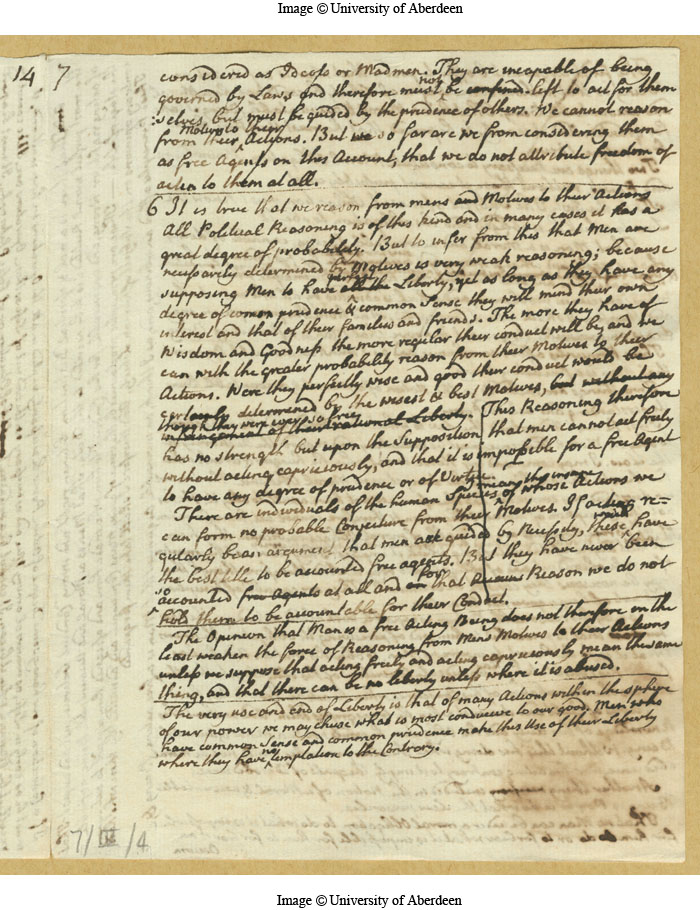 Image © University of Aberdeen
14 7
considered as Ideots or Madmen. They are incapable of being
governed by Laws and therefore must be confined. not left to act for them
selves, but must be guided by the prudence of others. We cannot reason
from their Motives to their Actions. But we so far are we from considering them
as free Agents on this Account, that we do not attribute freedom of
action to them at all.
6 It is true that we reason from mens and Motives to their Actions
All Political Reasoning is of this kind and in many cases it has a
great degree of probability. But to infer from this that Men are
necessarily determined by Motives is very weak reasoning; because
supposing Men to have all the perfect Liberty, yet as long as they have any
degree of common prudence & common Sense they will mind their own
interest and that of their families and friends. The more they have of
Wisdom and Goodness the more regular their conduct will be, and we
can with the greater probability reason from their Motives to their
Actions. Were they perfectly wise and good their conduct would be
certainly determined by the wisest & best Motives, but without any
though they were ever so free
infringement of their rational Liberty. This Reasoning therefore
has no strength but upon the Supposition that men cannot act freely
without acting capriciously, and that it is impossible for a free Agent
to have any degree of prudence or of Virtue.
I mean the insane
There are individuals of the human Species of whose Actions we
can form no probable Conjecture from their Motives. If acting re=
gularly be an argument that men are guided by Necessity, these have
the best title to be accounted free agents. But they have never been
so accounted free Agents at all and for that Reason we do not
hold them to be accountable for their Conduct.
The Opinion that Man is a free Acting Being does not therefore in the
least weaken the force of Reasoning from Mens Motives to their Actions
unless we suppose that acting freely and acting capriciously mean the same
thing, and that there can be no liberty unless where it is abused.
The very use and end of Liberty is that of many Actions within the sphere
of our power we may chuse what is most conducive to our good. Men who
have common Sense and common prudence make this Use of their Liberty
where they have no temptation to the Contrary.
7/III/4
Image © University of Aberdeen